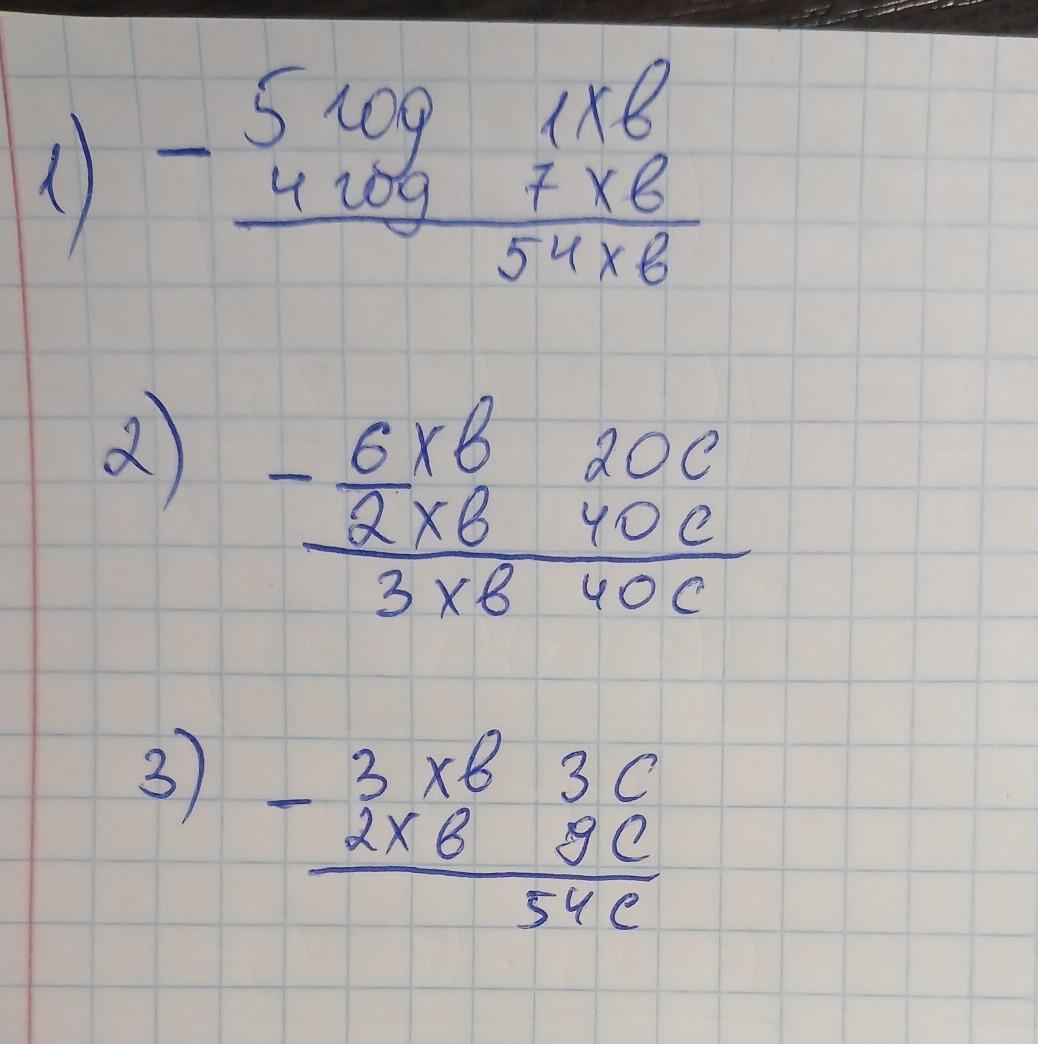 1) - 5 год 1 хв
4 год 7 хв
54 хв
2) - 6 хв 20 с
2 хв 40 с
3 хв 40 с
3) - 3 хв 3 с
2 хв 9 с
54 с